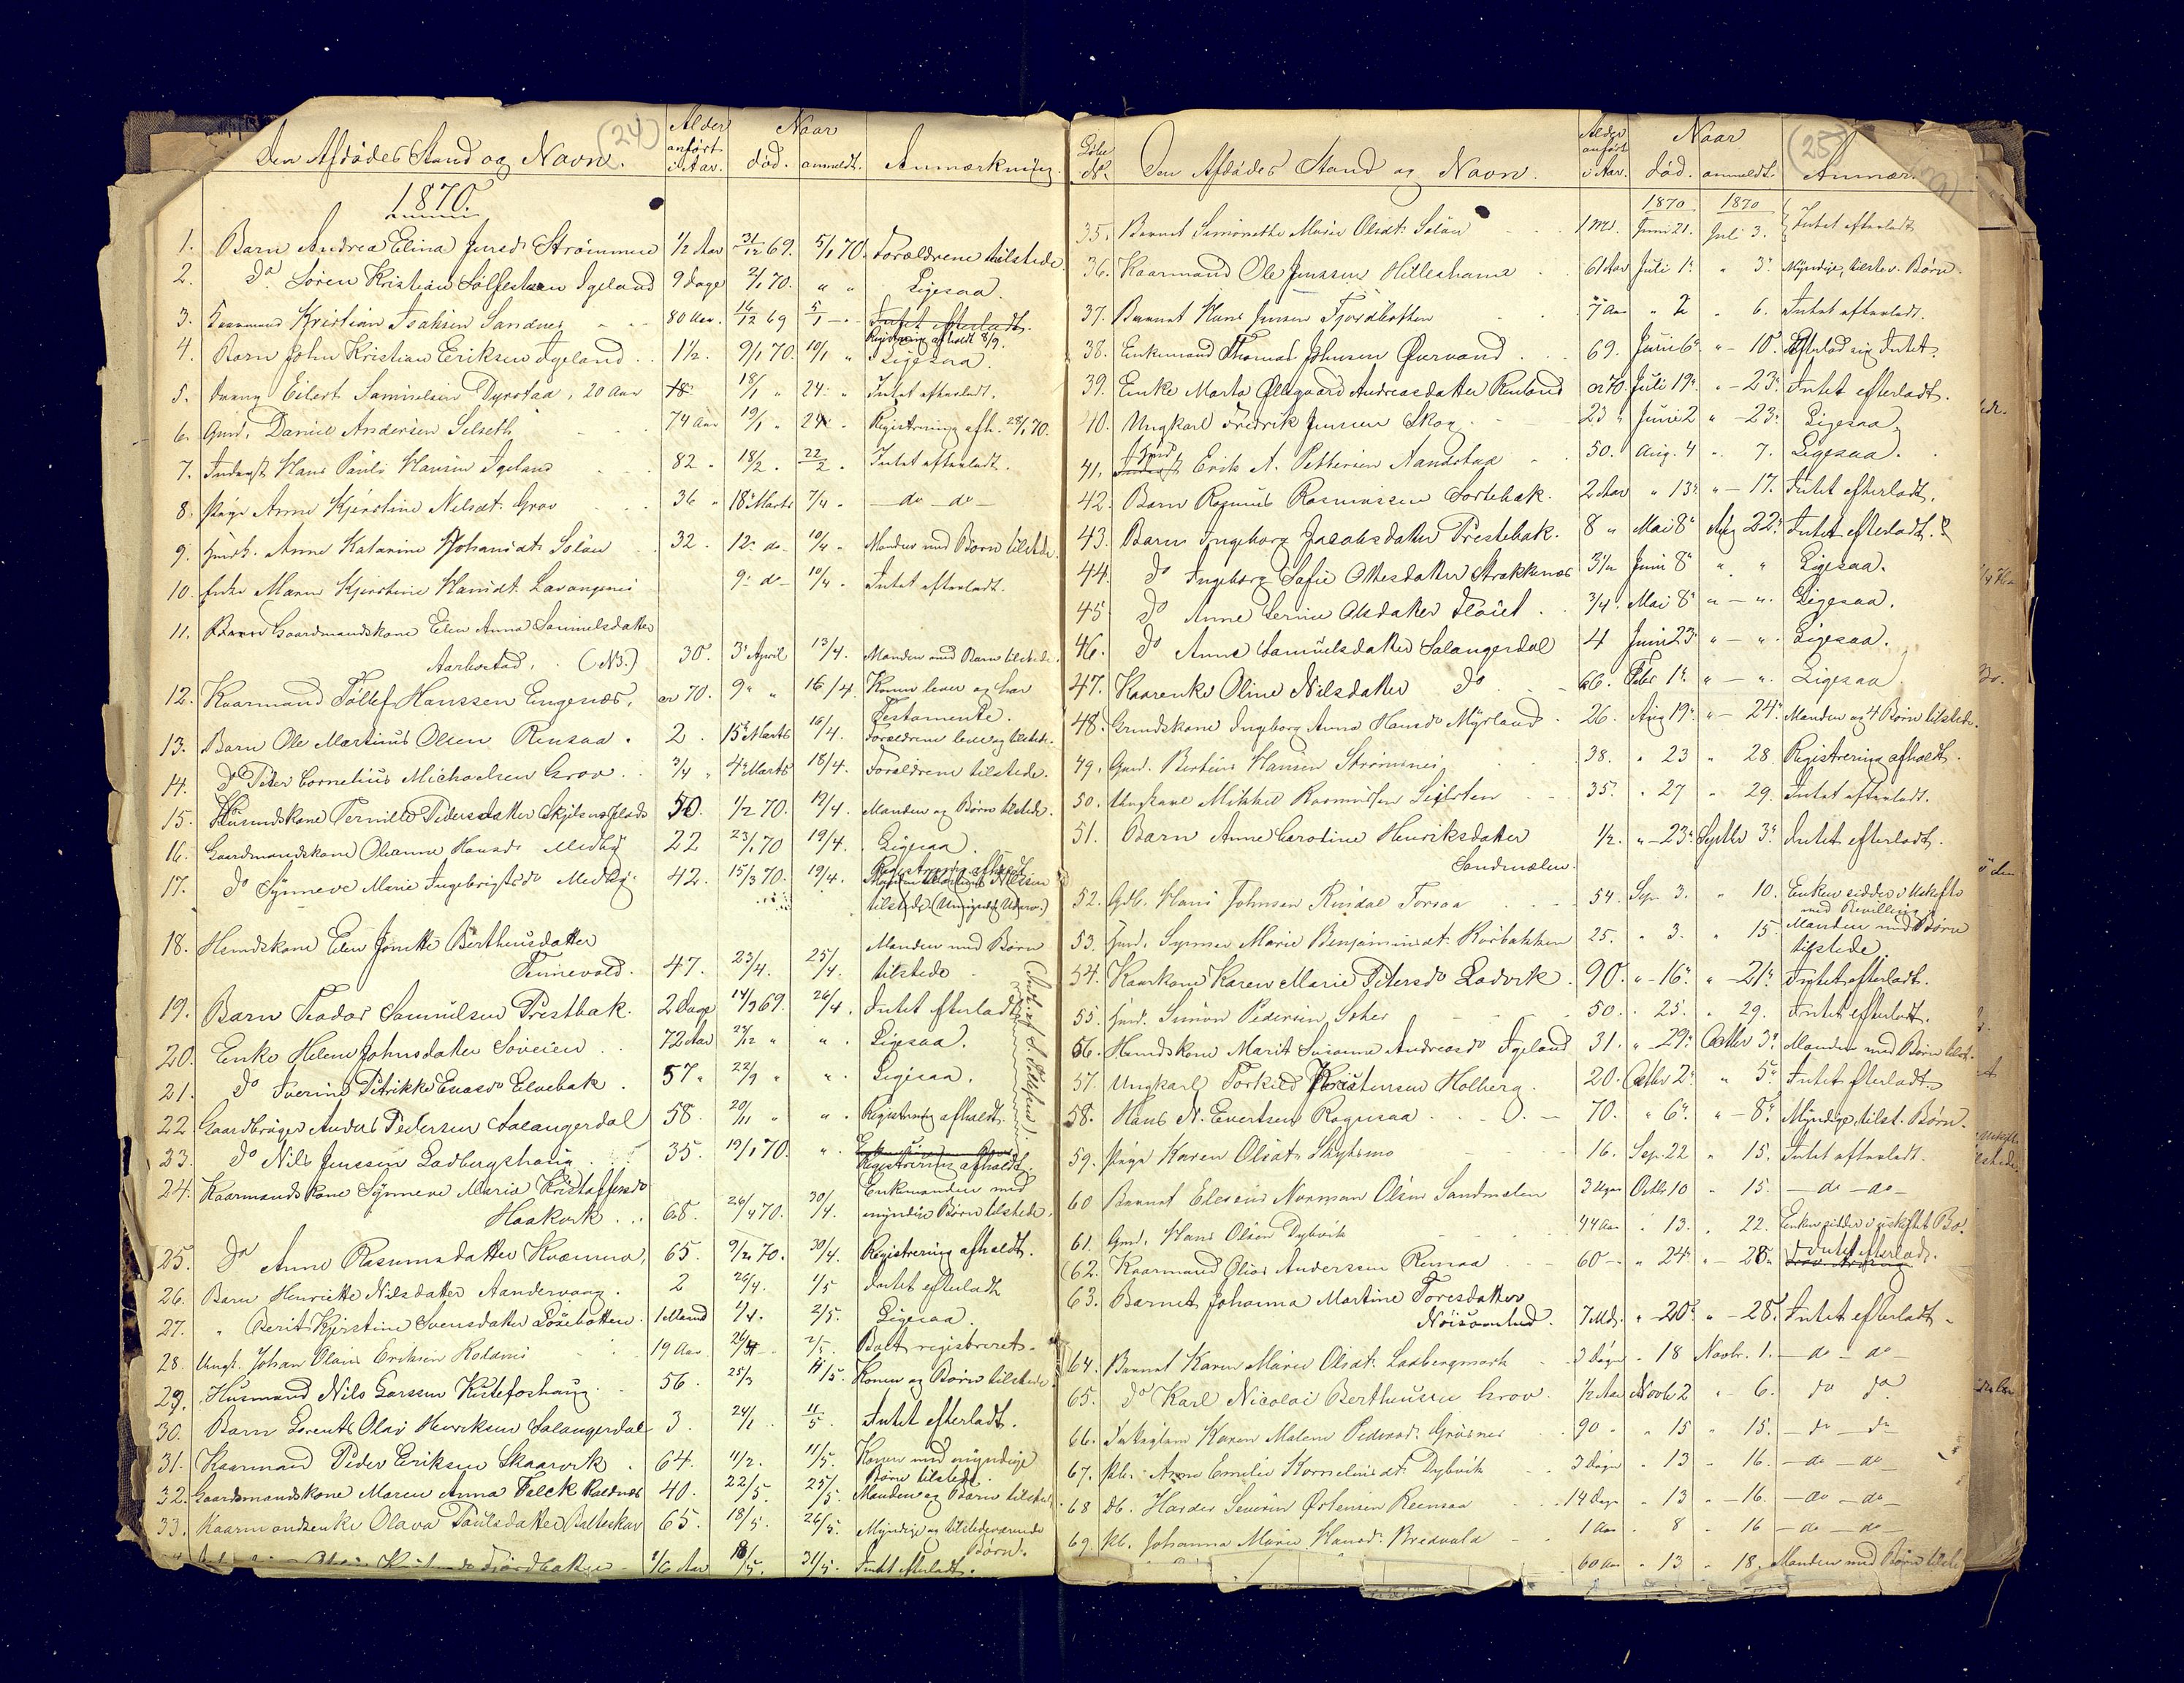 (24)
Den Afdödes Stand og Navn. Alder anfört i Aar. Naar död. anmeldt. Anmærkning.
1870.
1. Barn Andrea Elina Jensd. Strömmen 1/2 Aar 31/12 69. 5/1 70. Forældrene tilstede.
2. do Sören Kristian Sölfestsen Igeland 9 dage 2/1 70. " " Ligesaa.
3. Kaarmand Kristian Isaksen Sandnes 80 Aar. 16/12 69 5/1 - Intet efterladt.
Registrering afholdt 8/9.
4. Barn John Kristian Eriksen Igeland 1 1/2. 9/1 70. 10/1 " Ligesaa.
5. Eilert Samuelsen Dyrstad, 20 Aar 18/1 " 24 " Intet efterladt.
6. Gmd. Daniel Andersen Selseth 74 Aar 19/1 " 24 . Registrering afh. 28/1 70.
7. Inderst Hans Pauls Hansen Igeland 82 . 18/2 . 22/2 . Intet efterladt.
8. Pige Anne Kjerstine Nilsdt. Grov 36 " 18 Marts 7/4 . - do - do -
9. Anne Katarine Johansdt. Solöen 32 . 12 do 10/4 . Manden med Börn tilstede.
10. Enke Maren Kjerstine Hansdt. Lavangsnes 9 d 10/4 . Intet efterladt.
11. Gaardmandskone Elen Anna Samuelsdatter
Aarbostad. (NB.) 30. 3 April 13/4. Manden med Barn tilstede.
12. Kaarmand Tollef Hanssen Engenæs, ca 70. 9 " 16/4. Konen lever og har
Testamente.
13. Barn Ole Martinus Olsen Rensaa . 2 . 15 Marts 16/4. Forældrene lever og tilstede.
14. do Peder Cornelius Michaelsen Grov . 3/4 " 4 Marts 18/4. Forældrene tilstede.
15. Husmdskone Pernille Pedersdatter 50. 1/2 70. 19/4. Manden og Börn tilstede.
16. Gaardmandskone Oleanna Hansd. Medby 22 23/1 70 19/4. Ligesaa.
17. do Synneve Marie Ingebrigtsd. Medby 42. 15/3 70. 19/4. Registrering afholdt
tilstede
18. Husmdskone Elen Jonette Berthusdatter
Tennevold. 47. 23/4. 25/4. Manden med Börn
tilstede
19. Barn Teodor Samuelsen Prestbak. 2 Dage 14/9 69. 26/4. Intet efterladt
20. Enke Helene Johnsdatter Soveien . . 72 Aar 27/12 " " . Ligesaa.
21. do Iverine Petrikke Enoksd. Elvebak . 57 " 22/9 " " . Ligesaa.
22 Gaardbruger Anders Pedersen Salangerdal 58 20/11 " " . Registrering afholdt.
23. do Nils Jenssen Ladbergshaug . . 35. 19/1 70. " . Registrering afholdt.
24. Kaarmandskone Synneve Maria Kristoffersd.
Haakvik . . 68. 26/4 70. 30/4. Enkmanden med
myndige Börn tilstede.
25. do Anne Rasmusdatter Kvernmo, 65. 9/2 70. 30/4. Registrering afholdt.
26. Barn Henriette Nilsdatter Aandervaag . 2 26/4. 1/5 Intet efterladt
27. " Berit Kjerstine Svensdatter Lösebotten. 1 Maaned 1/4. 2/5. Ligesaa.
28. Ungk. Johan Olaus Eriksen 19 Aar 2/5. Boet registreret.
29. Husmand Nils Larssen Kistefoshaug . 56. 25/3 11/5. Konen og Börn tilstede.
30. Barn Lorents Olai Henriksen Salangerdal 3. 24/1 11/5. Intet efterladt.
31. Kaarmand Peder Eriksen Skaarvik . 64. 11/2. 11/5. Konen med myndige
Börn tilstede.
32. Gaardmandskone Maren Anna Falck Raldnæs 40. 22/5. 25/5. Manden og Barn tilstede
33. Kaarmandsenke Olava Paulsdatter 65. 18/5. 26/5. Myndige og tilstedeværende
Börn.
1/6 Aar 18/5. 31/5. Intet efterladt.
(25)
Löbe No Den Afdödes Stand og Navn. Alder anfört i Aar. Naar död. anmeldt. Anmær
1870 1870
35. Barnet Simonette Marie Olsdt. Solöen 1 Md. Juni 21. Juli 3. Intet efterladt
36. Kaarmand Ole Jenssen Hilleshamn . 61 Aar Juli 1 " 3 Myndige, tilstev. Börn.
37. Barnet Hans Jensen Fjordbotten 7 Aar " 2 . 6. Intet efterladt.
38. Enkemand Thomas Johnsen Ørvand . . . 69. Juni 6 " - 10. Efterlod sig Intet.
39. Enke Marta Ellegaard Andreasdatter Renland ca 70. Juli 19 . - 23. Intet efterladt.
40. Ungkarl Fredrik Jensen Skog 23 " Juni 2 " - 23. Ligesaa.
41. Erik A. Pettersen Aandstad 50. Aug. 4 " 7. Ligesaa.
42. Barn Rasmus Rasmussen Sortebak. 2 Aar " 13 " - 17. Intet efterladt.
43. Barn Ingeborg Jacobsdatter Prestebak. 8 " Mai 8 Aug 22. Intet efterladt.
44. do Ingeborg Sofie Ottesdatter Strokkenæs Juni 8 " " Ligesaa.
45 do Anne Olsdatter 3/4. Mai 8 " - ". Ligesaa.
46. do Anne Samuelsdatter Salangerdal 4 Juni 23 " - ". Ligesaa.
47. Kaarenke Oline Nilsdatter do . . 66. Febr 1. " - ". Ligesaa
48. Grmdskone Ingeborg Anna Hansd. Myrland . 26. Aug 19. " - 24. Manden og 4 Börn tilstede.
49. Gmd. Bertius Hansen Strömsnes 38. " 23 " 28 Registrering afholdt.
50. Ungkarl Mikkel Rasmussen 35. . 27 " 29. Intet efterladt.
51. Barn Anne Carotine Henriksdatter
Sandmælen. 1/2. " - 23. Septbr 3. Intet efterladt.
52. Hans Johnsen Rindal Forsaa 54. Sep. 3. " 10. Enken sidder i Uskifte
med Bevilling.
53. Synnev Marie Benjaminsdt. Rörbakken 25. " 3. " 15. Manden med Börn
tilstede
54. Kaarkone Karen Marie Petersd. Ladvik . 90. " - 16. " - 21. Intet efterladt.
55. Simon Pedersen 50. . 25. " 29. Intet efterladt.
56. Husmdskone Marit Susanne Andreasd. Igeland 31. " 29. Octbr 3. Manden med Börn tilst.
57. Ungkarl Torkild Kristensen Holberg. 20. Octbr 2. " 5. Intet efterladt.
58. Hans N. Evertsen Rognsaa 70. " 6. " - 8. Myndige, tilst. Börn.
59. Pige Karen Olsdt. 16. Sep. 22 " 15. Intet efterladt.
60 Barnet Elesens Norman Olsen Sandmælen 3 Uger Octbr 10 " 15. - do - do -
61. Gmd. Hans Olsen Dybvik 44 Aar " 13. . 22. Enken sidder i uskiftet Bo.
62. Kaarmand Olias Anderssen Rensaa 60 - " 24 " - 28. Intet efterladt.
63. Barnet Johanna Martine Toresdatter
Nöisomhed. 7 Md. " - 20. " - 28. Intet efterladt.
64. Barnet Karen Marie Olsdt. Ladbergmark 3 Dage " 18 Novbr. 1. - do - do -
65. do Karl Nicolai Bertheussen Grov . 1/2 Aar Novbr 2 " - 6. do do.
66. Karen Malene Pedersd. Grösnes 90 - " 15 " 15. - do do -
67. Pb. Anne Emilie Kornelinsdt. Dybvik 3 Dage " 13 " 16. - do - do -
68 db. Harder Severin Østensen Rensaa 14 Dage " 13 " - 16. - do - do -
69. Pb. Johanna Marie Hansd. Bredvold 1 Aar . 8 " 16 - do - do -
60 Aar " 13 " 18. Manden med Börn tilste